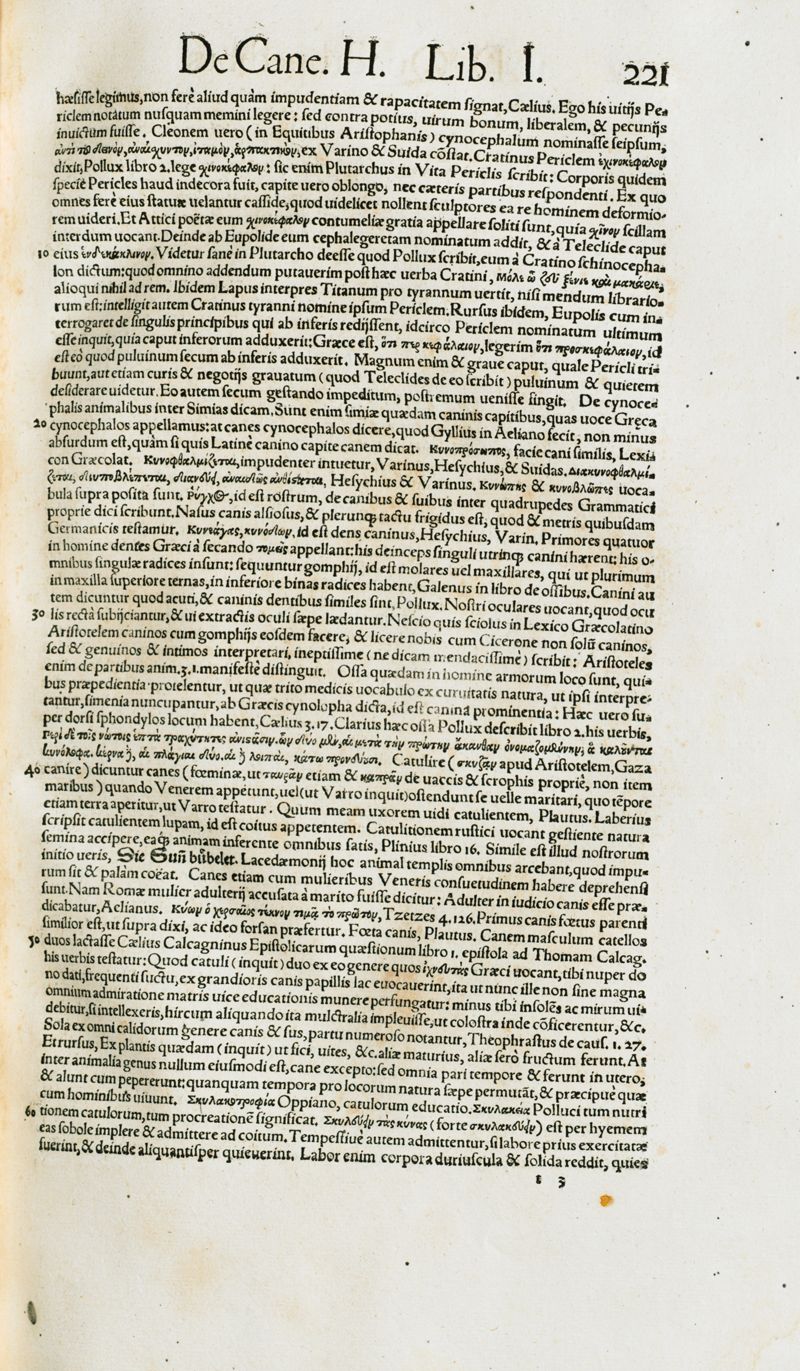 De Cane. H. Lib. I. 221
hæsisse legimus, non ferè aliud quàm impudentiam & rapacitatem signat, Cælius. Ego his uitijs Pe-
riclem notatum nusquam memini legere: sed contra potius, uirum bonum, liberalem, & pecunijs
inuictum fuisse. Cleonem uero (in Equitibus Aristophanis) cynocephalum nominasse seipsum,
ἀναιχυντον, ἰταμὸν, ἁρπακτικὸν, ex Varino & Suida cõstat. Cratinus Periclem σχινοκέφαλον
dixit, Pollux libro 2. lege σχινοκέφαλον: sic enim Plutarchus in Vita Periclis scribit: Corporis quidem
specie Pericles haud indecora fuit, capite uero oblongo, nec cæteris partibus respondenti. Ex quo
omnes ferè eius statuæ uelantur casside, quod uidelicet nollent sculptores ea re hominem deformio-
rem uideri. Et Attici poëtæ eum σχινοκέφαλον contumeliæ gratia appellare soliti sunt, quia σχῖνον scillam
interdum uocant. Deinde ab Eupolide eum cephalegeretam nominatum addit, & à Teleclide caput
10 eius ἑνδεκάκλινον. Videtur sanè in Plutarcho deesse quod Pollux scribit, eum à Cratino schinocepha-
lon dictum: quod omnino addendum putauerim post hæc uerba Cratini, Μόλ' ὦ ζεῦ ξένιε καὶ μακάριε,
alioqui nihil ad rem. Ibidem Lapus interpres Titanum pro tyrannum uertit, nisi mendum librario-
rum est: intelligit autem Cratinus tyranni nomine ipsum Periclem. Rursus ibidem, Eupolis cum in-
terrogaret de singulis principibus qui ab inferis redijssent, idcirco Periclem nominatum ultimum
esse inquit, quia caput inferorum adduxerit: Græce est, ὅτι περ κεφάλαιον, legerim ὅτι προσκεφάλαιον, id
est eo quod puluinum secum ab inferis adduxerit. Magnum enim & graue caput, quale Pericli tri-
buunt, aut etiam curis & negotijs grauatum (quod Teleclides de eo scribit) puluinum & quietem
desiderare uidetur. Eo autem secum gestando impeditum, postremum uenisse fingit. De cynoce-
phalis animalibus inter Simias dicam. Sunt enim simiæ quædam caninis capitibus, quas uoce Græca
20 cynocephalos appellamus: at canes cynocephalos dicere, quod Gyllius in Aeliano fecit, non minus
absurdum est, quàm si quis Latinè canino capite canem dicat. Κυνοπρόσωπος, facie cani similis, Lexi-
con Græcolat. Κυνοφθαλμίζεται, impudenter intuetur, Varinus, Hesychius, & Suidas. Διακυνοφθαλμί-
ζεται, Hesychius & Varinus. Κυνώπης & κυνοβλῶπες uoca-
bula supra posita sunt. Ρύγχος, id est rostrum, de canibus & suibus inter quadrupedes Grammatici
proprie dici scribunt. Nasus canis alsiosus, & plerunq; tactu frigidus est, quod & metris quibusdam
Germanicis testamur. Κυνιάγας, κυνόδων, id est dens caninus, Hesychius, Varin. Primores quatuor
in homine dentes Græci à secando τομεῖς appellant: his deinceps singuli utrinq; canini hærent: his o-
mnibus singulæ radices insunt: sequuntur gomphij, id est molares uel maxillares, qui ut plurimum
in maxilla superiore ternas, in inferiore binas radices habent, Galenus in libro de ossibus. Canini au
tem dicuntur quod acuti, & caninis dentibus similes sint, Pollux. Nostri oculares uocant, quod ocu
30 lis rectà subijciantur, & ui extractis oculi sæpe lædantur. Nescio quis sciolus in Lexico Græcolatino
Aristotelem caninos cum gomphijs eosdem facere, & licere nobis cum Cicerone non solũ caninos,
sed & genuinos & intimos interpretari, ineptissime (ne dicam mendacissime) scribit: Aristoteles
enim de partibus anim. 3. 1. manifestè distinguit. Ossa quædam in homine armorum loco sunt, qui-
bus præpedientia protelentur, ut quæ trito medicis uocabulo ex curuitatis natura, ut ipsi interpre-
tantur, simenia nuncupantur, ab Græcis cynolopha dicta, id est canina prominentia: Hæc uero su-
per dorsi sphondylos locum habent, Cælius 3. 17. Clarius hæc ossa Pollux describit libro 2. his uerbis,
Περὶ δὲ τοῖς νώτοις ὀστᾶ τραχύτητες ἀνισᾶσιν. ὧν δύο μὲν, αἱ μετὰ τὴν πρώτην ἄκανθαν ὀνομαζομένην, ἃ καλεῖται
κυνόλοφα. ἱερὰ δὲ, αἱ πλάγιαι δύο. αἱ δὲ λοιπαὶ, κάτω προνεύουσι. Catulire (σκυζᾷν apud Aristotelem, Gaza
40 canire) dicuntur canes (fœminæ, ut ταυρᾷν etiam & καπρᾷν de uaccis & scrophis propriè, non item
maribus) quando Venerem appetunt, uel (ut Varro inquit) ostendunt se uelle maritari, quo tẽpore
etiam terra aperitur, ut Varro testatur. Quum meam uxorem uidi catulientem, Plautus. Laberius
scripsit catulientem lupam, id est coitus appetentem. Catulitionem rustici uocant gestiente natura
semina accipere, eaq; animam inferente omnibus satis, Plinius libro 16. Simile est illud nostrorum
initio ueris, Die Sun bůbelet. Lacedæmonij hoc animal templis omnibus arcebant, quod impu-
rum sit & palàm coëat. Canes etiam cum mulieribus Veneris consuetudinem habere deprehensi
sunt. Nam Romæ mulier adulterij accusata à marito fuisse dicitur: Adulter in iudicio canis esse præ-
dicabatur, Aelianus. Κύων ὁ χερσαῖος τέκνον τιμᾷ τὸ πρῶτον, Tzetzes 4. 126. Primus canis fœtus parenti
similior est, ut supra dixi, ac ideo forsan præfertur. Fœta canis, Plautus. Canem masculum catellos
50 duos lactasse Cælius Calcagninus Epistolicarum quæstionum libro 1. epistola ad Thomam Calcag.
his uerbis testatur: Quod catuli (inquit) duo ex eo genere quos ἰχνευτὰς Græci uocant, tibi nuper do
no dati, frequenti suctu, ex grandioris canis papillis lac euocauerint, ita ut nunc ille non sine magna
omnium admiratione matris uice educationis munere perfungatur: minus tibi insolẽs ac mirum ui-
debitur, si intellexeris, hircum aliquando ita mulctralia impleuisse, ut colostra inde cõficerentur, &c.
Sola ex omni calidorum genere canis & sus, partu numeroso notantur, Theophrastus de caus. 1. 27.
Etrursus, Ex plantis quædam (inquit) ut fici, uites, &c. aliæ maturius, aliæ serò fructum ferunt. At
inter animalia genus nullum eiusmodi est, cane excepto: sed omnia pari tempore & ferunt in utero,
& alunt cum pepererunt: quanquam tempora pro locorum natura sæpe permutãt, & præcipuè quæ
cum hominibus uiuunt. Σκυλακοτροφία Oppiano, catulorum educatio. Σκυλακεία Polluci tum nutri
60 tionem catulorum, tum procreationẽ significat. Σκυλεύειν τὰς κύνας (forte σκυλακεύειν) est per hyemem
eas sobole implere & admittere ad coitum. Tempestiuè autem admittentur, si labore prius exercitatæ
fuerint, & deinde aliquantisper quieuerint. Labor enim corpora duriuscula & solida reddit, quies
t 3